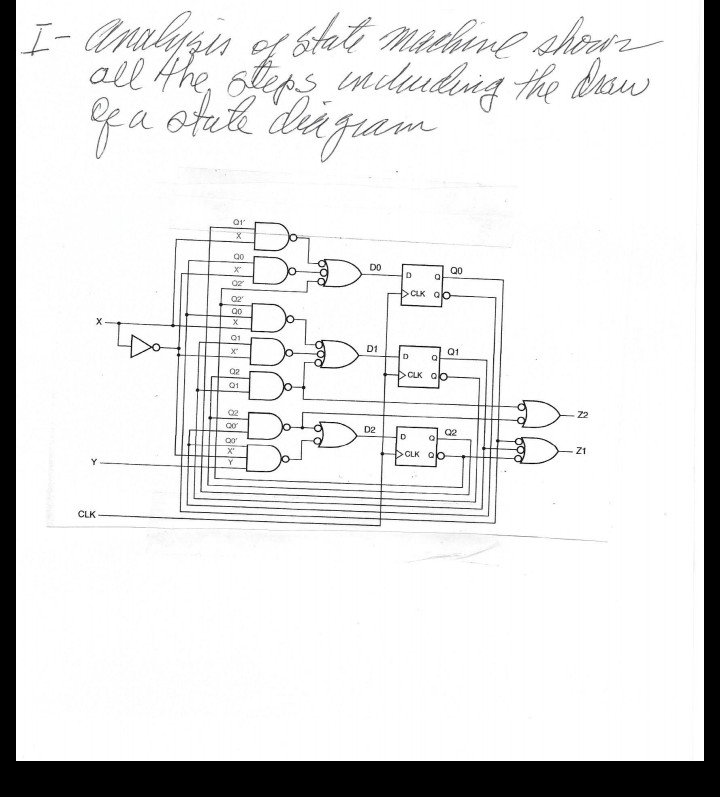 I- Analysis of state machine shows
all the steps including the draw
of a state diagram
Q1'
X
Q0
X'
Q2'
D0
D Q
CLK Q
Q0
Q2'
Q0
X
X
Q1
X'
D1
D Q
CLK Q
Q1
Q2
Q1
Q2
Q0'
D2
D Q
CLK Q
Q2
Z2
Q0'
X'
Y
Z1
Y
CLK